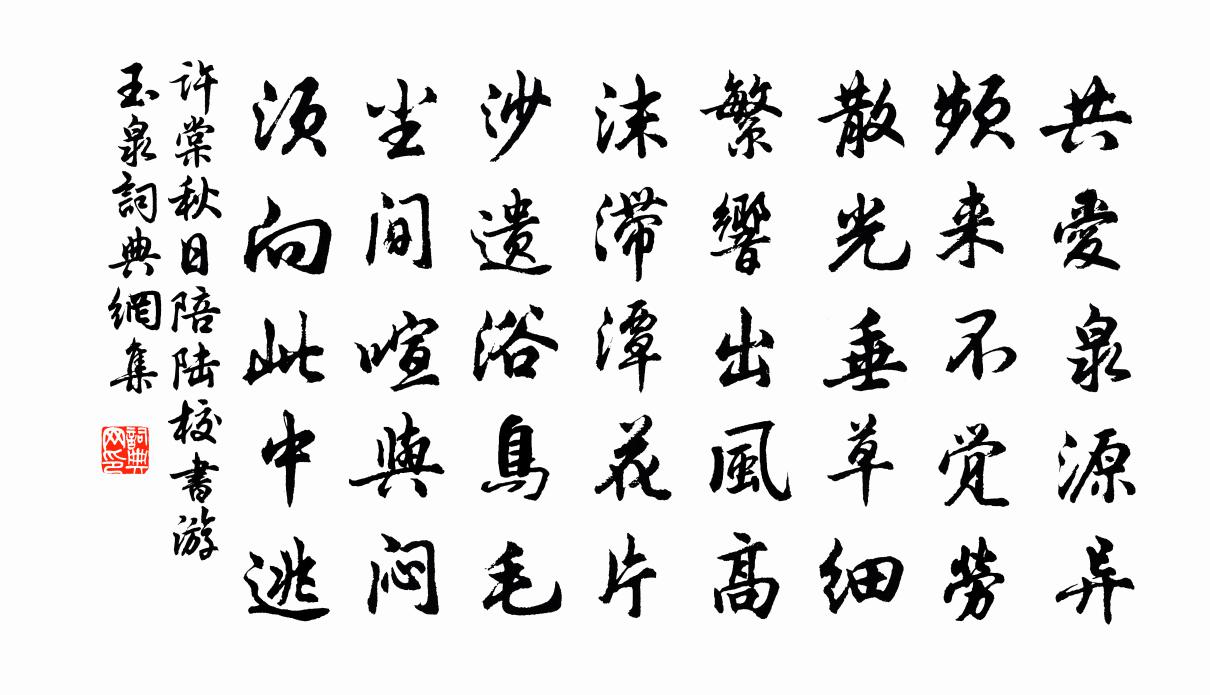 共愛泉源异
頻来不觉勞
散光垂草细
繁響出風高
沫滞潭花片
沙遗浴鳥毛
尘间喧與闷
须向此中逃
许棠秋日陪陆校書游
玉泉詞典網集
詞典
网印